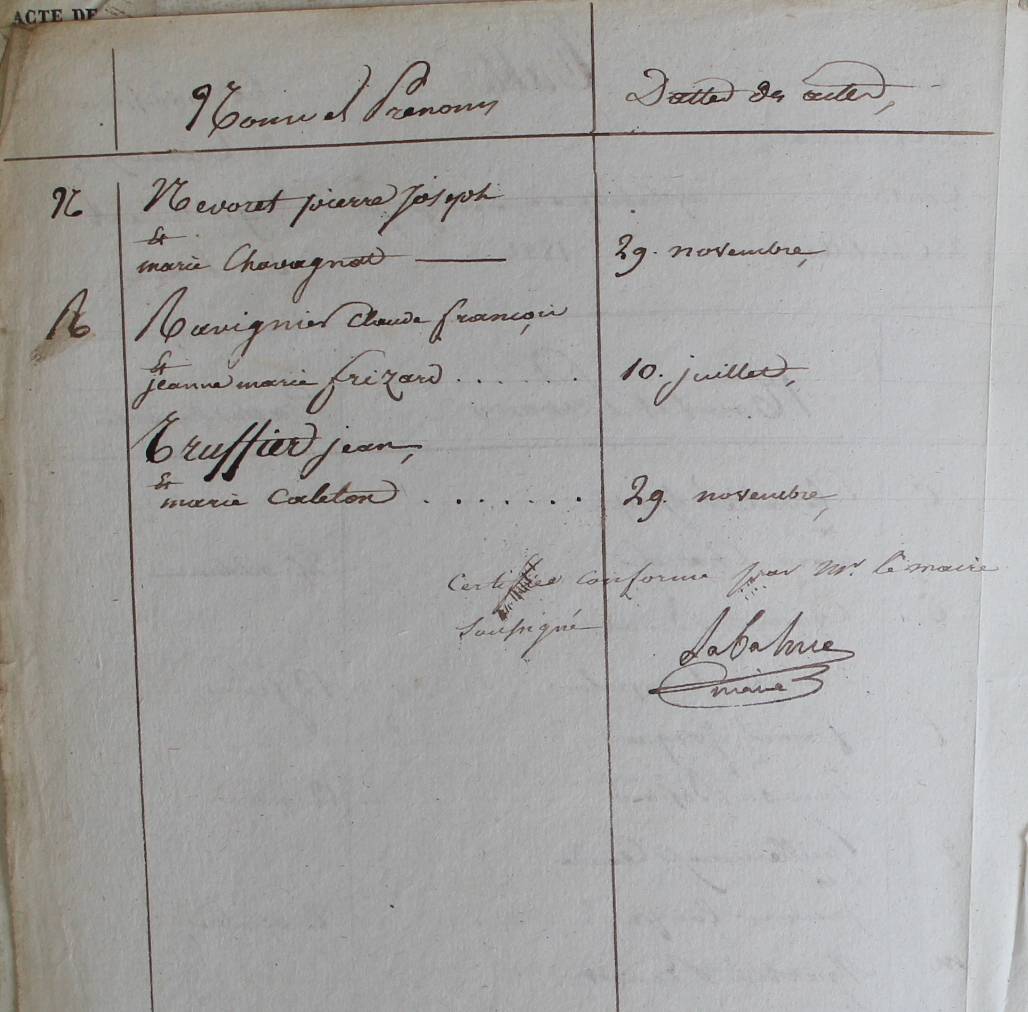 ACTE DE
Noms et Prenoms
Dattes des actes,
N Nevoret pierre joseph
et
marie Chavagnat
29. novembre,
R Ravignier Claude françois
et
jeanne marie frizard . . . . . . 10. juillet,
Truffier jean,
et
marie Caleton . . . . . . . 29. novembre,
Certifiée conforme par Mr. le maire
soussigné
maire